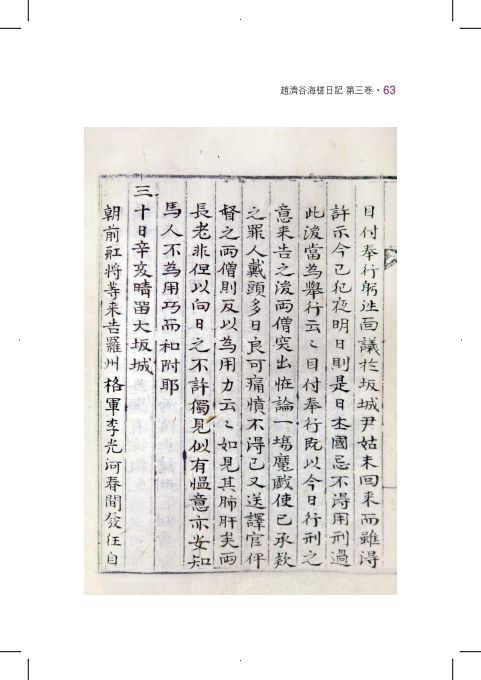 趙濟谷海槎日記 第三卷・63
目付奉行躬進面議於坂城尹姑未回来而雖得
許示今已犯夜明日則是日本國忌不得用刑過
此後當為擧行云〻目付奉行既以今日行刑之
意来告之後兩僧突出恠論一塲魔戯使已承款
之罪人戴頭多日良可痛憤不得已又送譯官伻
督之兩僧則反以為用力云〻如見其肺肝矣兩
長老非但以向日之不許獨見似有慍意亦安知
馬人不為用巧而和附耶
三十日辛亥晴留大坂城
朝前舡将等来告羅州格軍李光河春間發狂自